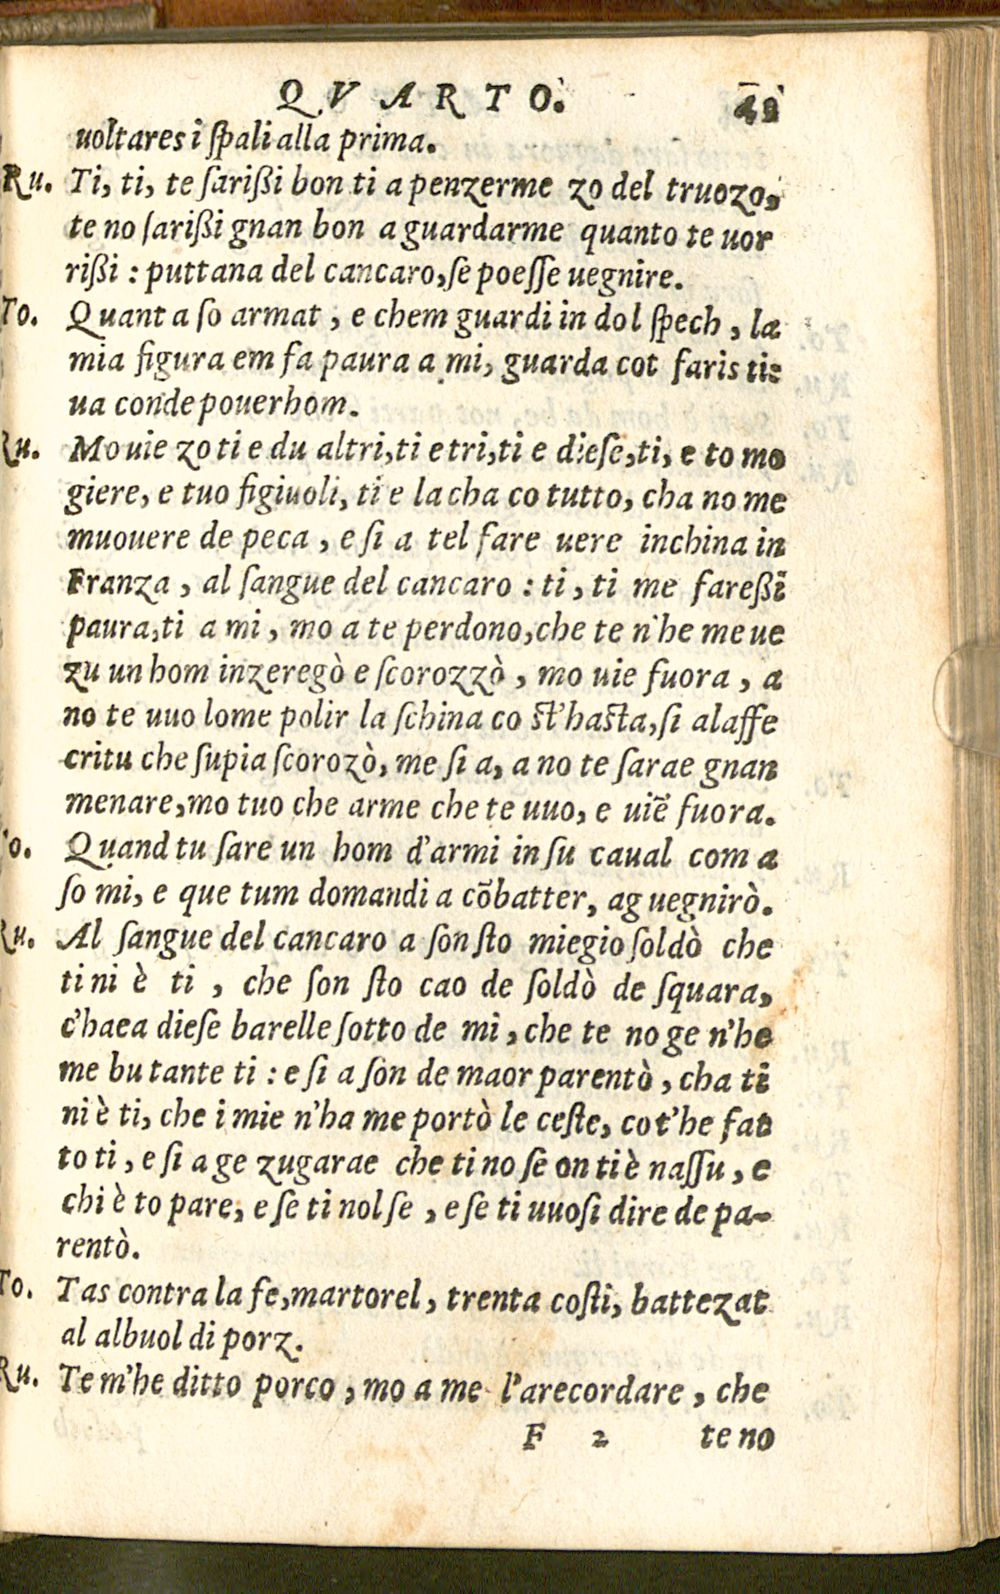 QVARTO. 42
uoltares i ſpali alla prima.
Ru. Ti, ti, te ſarißi bon ti a penzerme zo del truozo,
te no ſarißi gnan bon a guardarme quanto te uor
rißi : puttana del cancaro, ſe poeſſe uegnire.
To. Quant a ſo armat, e chem guardi in dol ſpech, la
mia figura em fa paura a mi, guarda cot faris tic
ua conde pouerhom.
Ru. Mo uie zo ti e du altri, ti e tri, ti e dieſe, ti, e to mo
giere, e tuo figiuoli, ti e la cha co tutto, cha no me
muouere de peca, e ſi a tel fare uere inchina in
Franza, al ſangue del cancaro : ti, ti me fareßi
paura, ti a mi, mo a te perdono, che te n'he me ue
zu un hom inzeregò e ſcorozzò, mo uie fuora, a
no te uuo lome polir la ſchina co ſt'haſta, ſi alaffe
critu che ſupia ſcorozò, me ſi a, a no te ſarae gnan
menare, mo tuo che arme che te uuo, e uiē fuora.
To. Quand tu ſare un hom d'armi in ſu caual com a
ſo mi, e que tum domandi a cōbatter, ag uegnirò.
Ru. Al ſangue del cancaro a ſon ſto miegio ſoldò che
ti ni è ti, che ſon ſto cao de ſoldò de ſquara,
c'haea dieſe barelle ſotto de mi, che te no ge n'he
me bu tante ti : e ſi a ſon de maor parentò, cha ti
ni è ti, che i mie n'ha me portò le ceſte, co t'he fat
to ti, e ſi a ge zugarae che ti no ſe on ti è naſſu, e
chi è to pare, e ſe ti nol ſe, e ſe ti uuoſi dire de pa-
rentò.
To. Tas contra la fe, martorel, trenta coſti, battezat
al albuol di porz.
Ru. Te m'he ditto porco, mo a me l'arecordare, che
F 2 te no